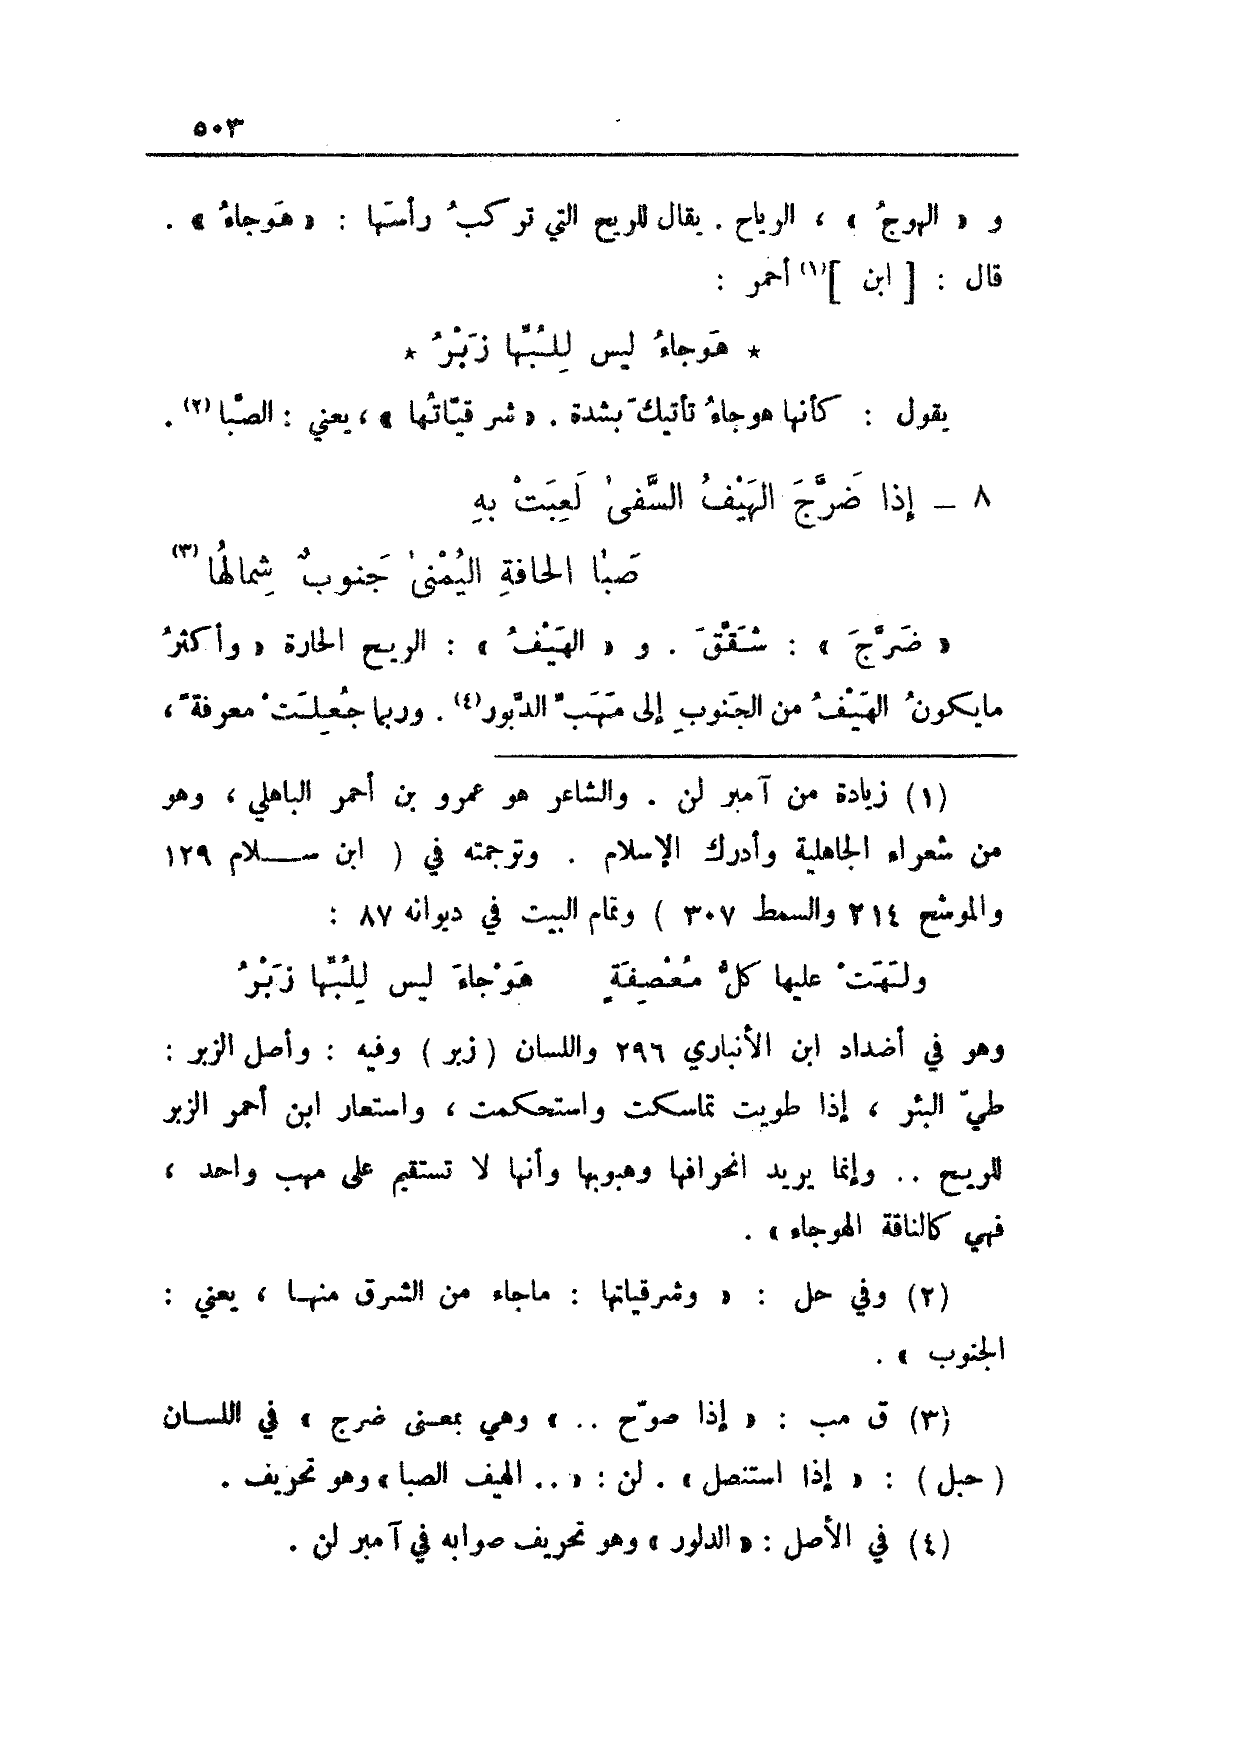 ٥٠٣
و « الهوجُ » ، الرياح . يقال للريح التي تركبُ رأسَها : « هَوجاءُ » .
قال : [ ابن ](١) أحمر :
★ هَوجاءُ ليس لِلُبِّها زَبْرُ ★
يقول : كأنها هوجاءُ تأتيكَ بشدة . « شرقيّاتُها » ، يعني : الصَّبا (٢) .
٨ – إذا ضَرَّجَ الهَيْفُ السَّفىٰ لَعِبَتْ بهِ
صَبْا الحافةِ اليُمْنىٰ جَنوبٌ شِمالهُا (٣)
« ضَرَّجَ » : شَقَّقَ . و « الهَيْفُ » : الريح الحارة « وأكثرُ
مايكونُ الهَيْفُ من الجَنوبِ إلى مَهَبِّ الدَّبور(٤) . وربما جُعِلَتْ معرفةً ،
(١) زيادة من آمبر لن . والشاعر هو عمرو بن أحمر الباهلي ، وهو
من شعراء الجاهلية وأدرك الإسلام . وترجمته في ( ابن ســـلام ١٢٩
والموشح ٢١٤ والسمط ٣٠٧ ) وتمام البيت في ديوانه ٨٧ :
ولَهَتْ عليها كلُّ مُعْصِفَةٍ هَوْجاءَ ليس لِلُبِّها زَبْرُ
وهو في أضداد ابن الأنباري ٢٩٦ واللسان ( زبر ) وفيه : وأصل الزبر :
طيّ البئر ، إذا طويت تماسكت واستحكمت ، واستعار ابن أحمر الزبر
للريح .. وإنما يريد انحرافها وهبوبها وأنها لا تستقيم على مهب واحد ،
فهي كالناقة الهوجاء » .
(٢) وفي حل : « وشرقياتها : ماجاء من الشرق منهــا ، يعني :
الجنوب » .
(٣) ق مب : « إذا صوّح .. » وهي بمعنى ضرج » في اللســان
( حبل ) : « إذا استنصل » . لن : « .. الهيف الصبا » وهو تحريف .
(٤) في الأصل : « الدلور » وهو تحريف صوابه في آمبر لن .